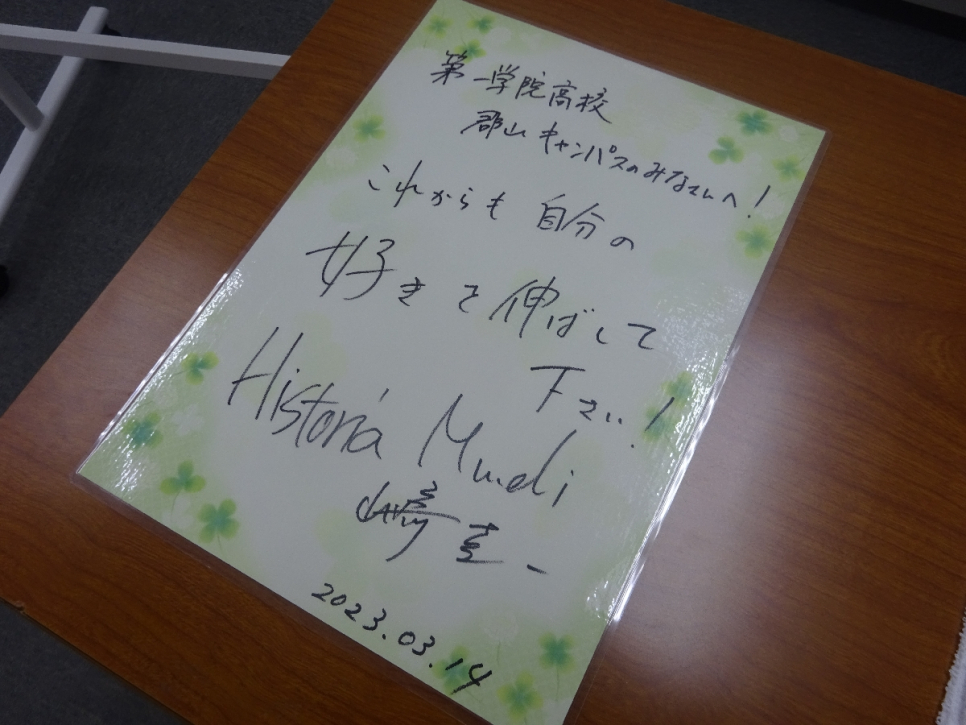 第一学院高校
郡山キャンパスのみなさんへ！
これからも自分の
好きを伸ばして
下さい！
Historia Mundi
山﨑圭一
2023.03.14